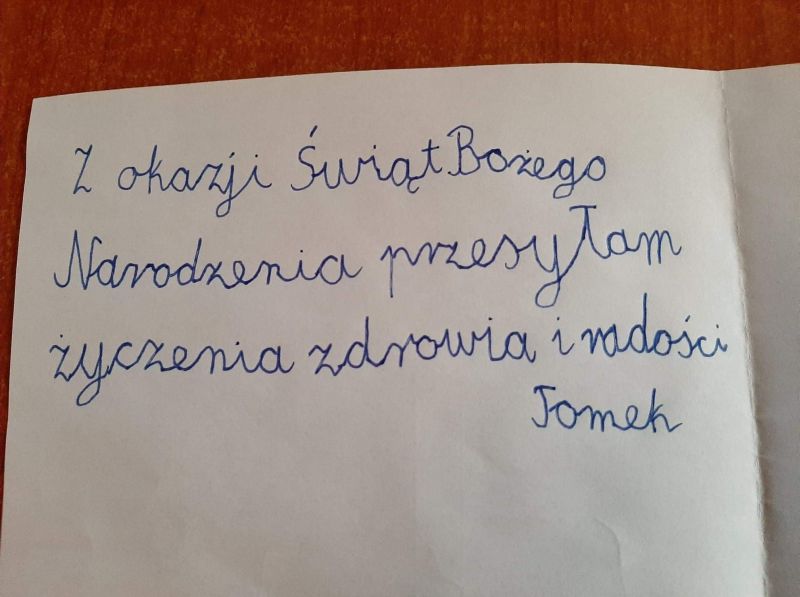 Z okazji Świąt Bożego
Narodzenia przesyłam
życzenia zdrowia i radości
Tomek